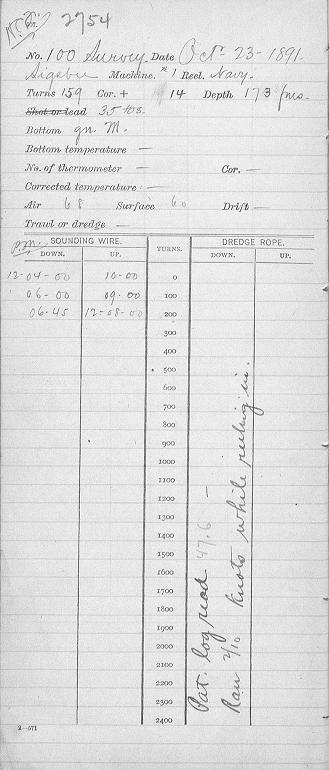 2754
No. 100 Survey Date Oct. 23 - 1891.
Sigsbee Machine. # 1 Reel, Navy.
Turns 159 Cor. + 14 Depth 173 fms.
Shot or lead 35 lbs.
Bottom gn. M.
Bottom temperature —
No. of thermometer — Cor. —
Corrected temperature —
Air 68 Surface 60 Drift —
Trawl or dredge —
P.M. SOUNDING WIRE. TURNS. DREDGE ROPE.
DOWN. UP. DOWN. UP.
12-04-00 10-00 0
06-00 09-00 100
06-45 12-08-00 200
300
400
500
600
700
800
900
1000
1100
1200
1300
1400
1500
1600
1700
1800
1900
2000
2100
2200
2300
2400
Pat. log read 47.6 —
Ran 2/10 knots while reeling in.
2—571